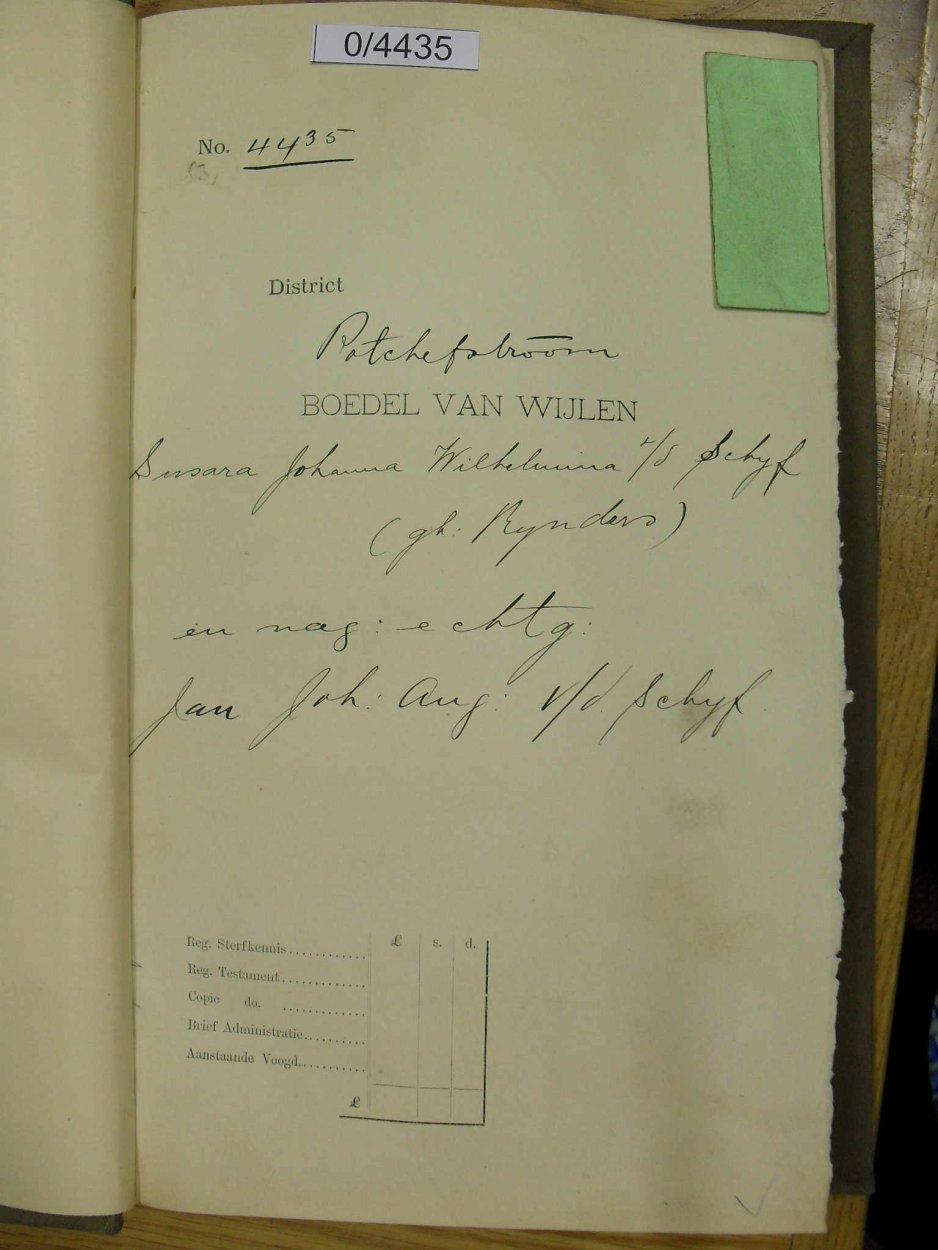 0/4435
No. 4435
District
Potchefstroom
BOEDEL VAN WIJLEN
Susara Johanna Wilhelmina v/d Schyf
(gb: Rynders)
en nag: echtg:
Jan Joh: Aug: v/d Schyf
£ s. d.
Reg. Sterfkennis............
Reg. Testament.............
Copie do. .............
Brief Administratie..........
Aanstaande Voogd...........
£